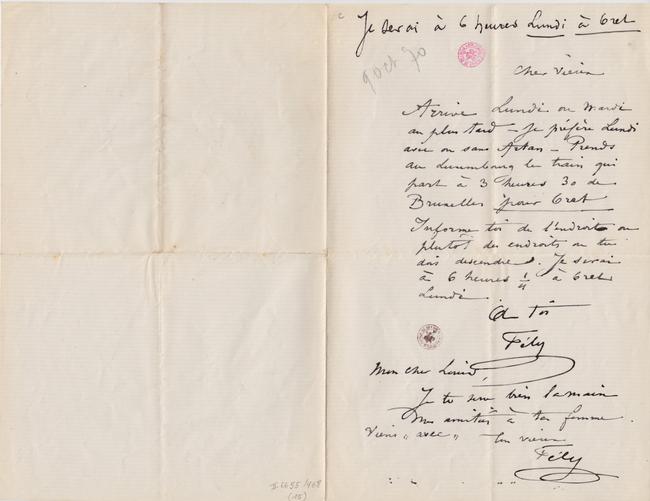 Je serai à 6 heures Lundi à Gret
9 oct 70
Cher vieux
Arrive Lundi ou Mardi
au plus tard – Je préfère Lundi
avec ou sans Artan – Prends
au Luxembourg le train qui
part à 3 heures 30 de
Bruxelles pour Gret
Informe toi de l'endroit ou
plutôt des endroits ou tu
dois descendre. Je serai
à 6 heures 1/4 à Gret
Lundi.
A toi
Fély
Mon cher Louis,
Je te serre bien la main
Mes amitiés à ta femme.
Viens „ avec „ ton vieux
Fély
II 6655/468
(15)